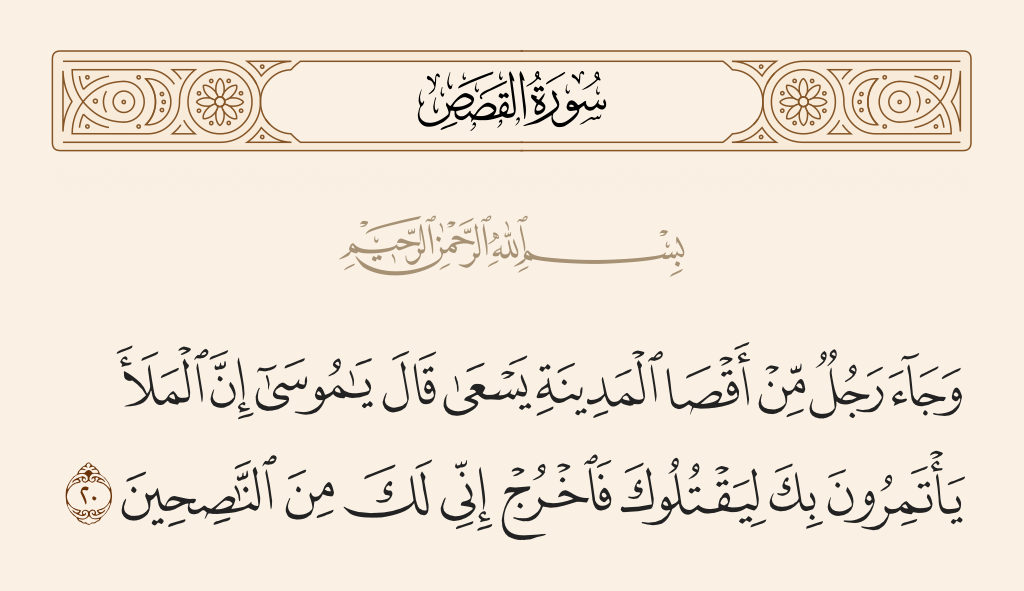 سُورَةُ القَصَصِ
بِسْمِ ٱللَّهِ ٱلرَّحْمَٰنِ ٱلرَّحِيمِ
وَجَآءَ رَجُلٌ مِّنْ أَقْصَا ٱلْمَدِينَةِ يَسْعَىٰ قَالَ يَـٰمُوسَىٰٓ إِنَّ ٱلْمَلَأَ
يَأْتَمِرُونَ بِكَ لِيَقْتُلُوكَ فَٱخْرُجْ إِنِّى لَكَ مِنَ ٱلنَّـٰصِحِينَ ٢٠